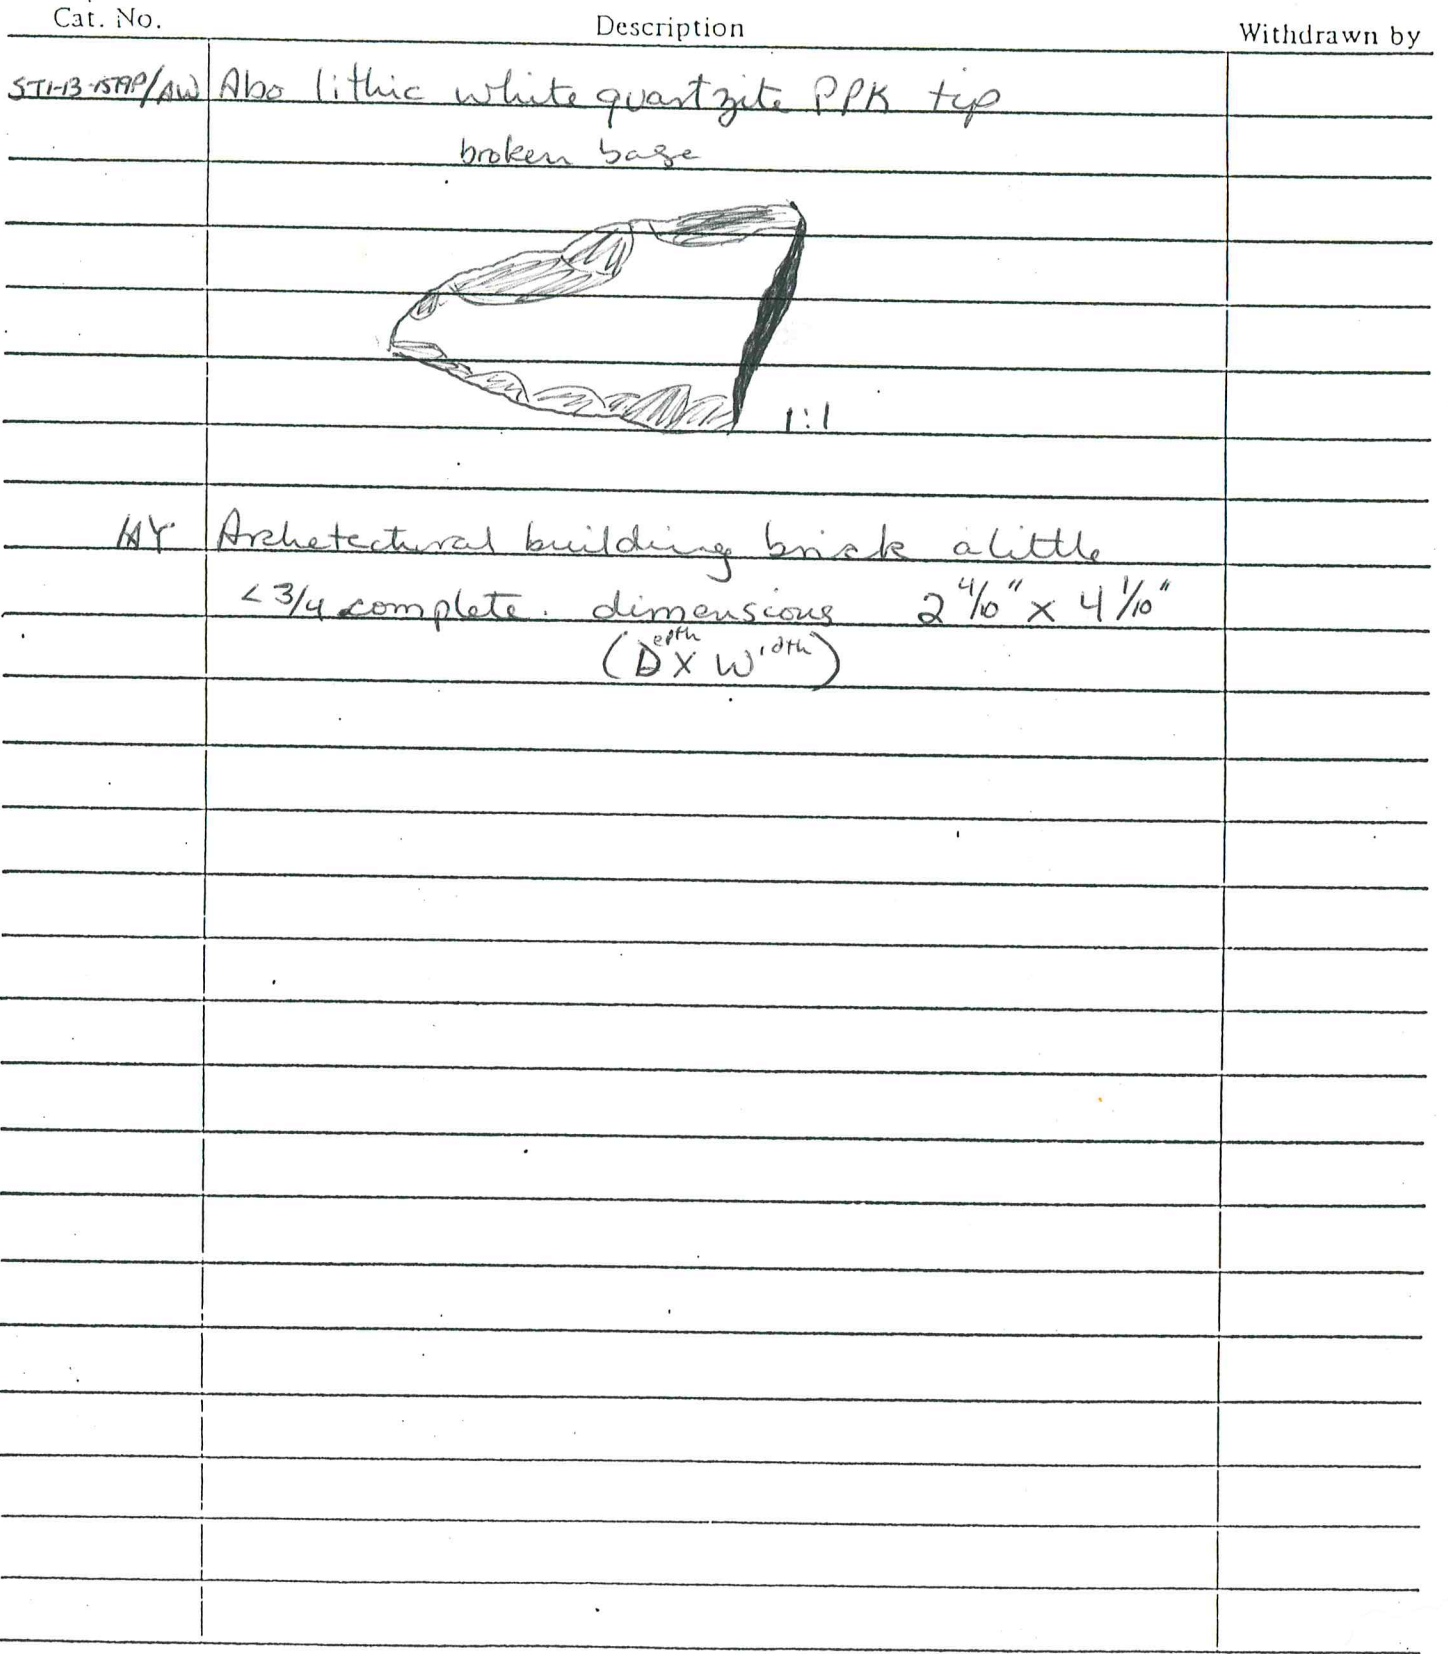 Cat. No. Description Withdrawn by
ST1-13-157AP/AW Abo lithic white quartzite PPK tip
broken base
1:1
AY Archetectural building brick a little
< 3/4 complete. dimensions 2 4/10" x 4 1/10"
(Depth X Width)